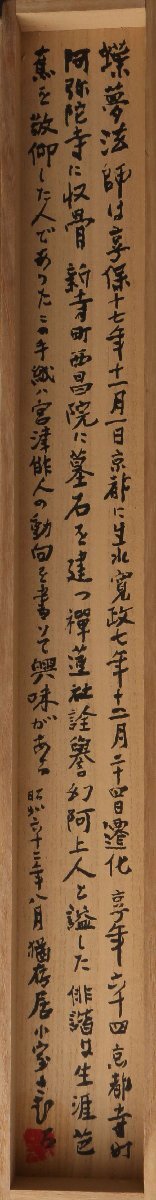 蝶夢法師は享保十七年十一月一日京都に生れ寛政七年十二月二十四日遷化 享年六十四 京都寺町
阿弥陀寺に収骨 新寺町西昌院に墓石を建つ 禅蓮社詮誉幻阿上人と諡した 俳諧は生涯芭
蕉を敬仰した人であつた この手紙は宮津俳人の動向を書いて興味がある 昭和六十三年八月